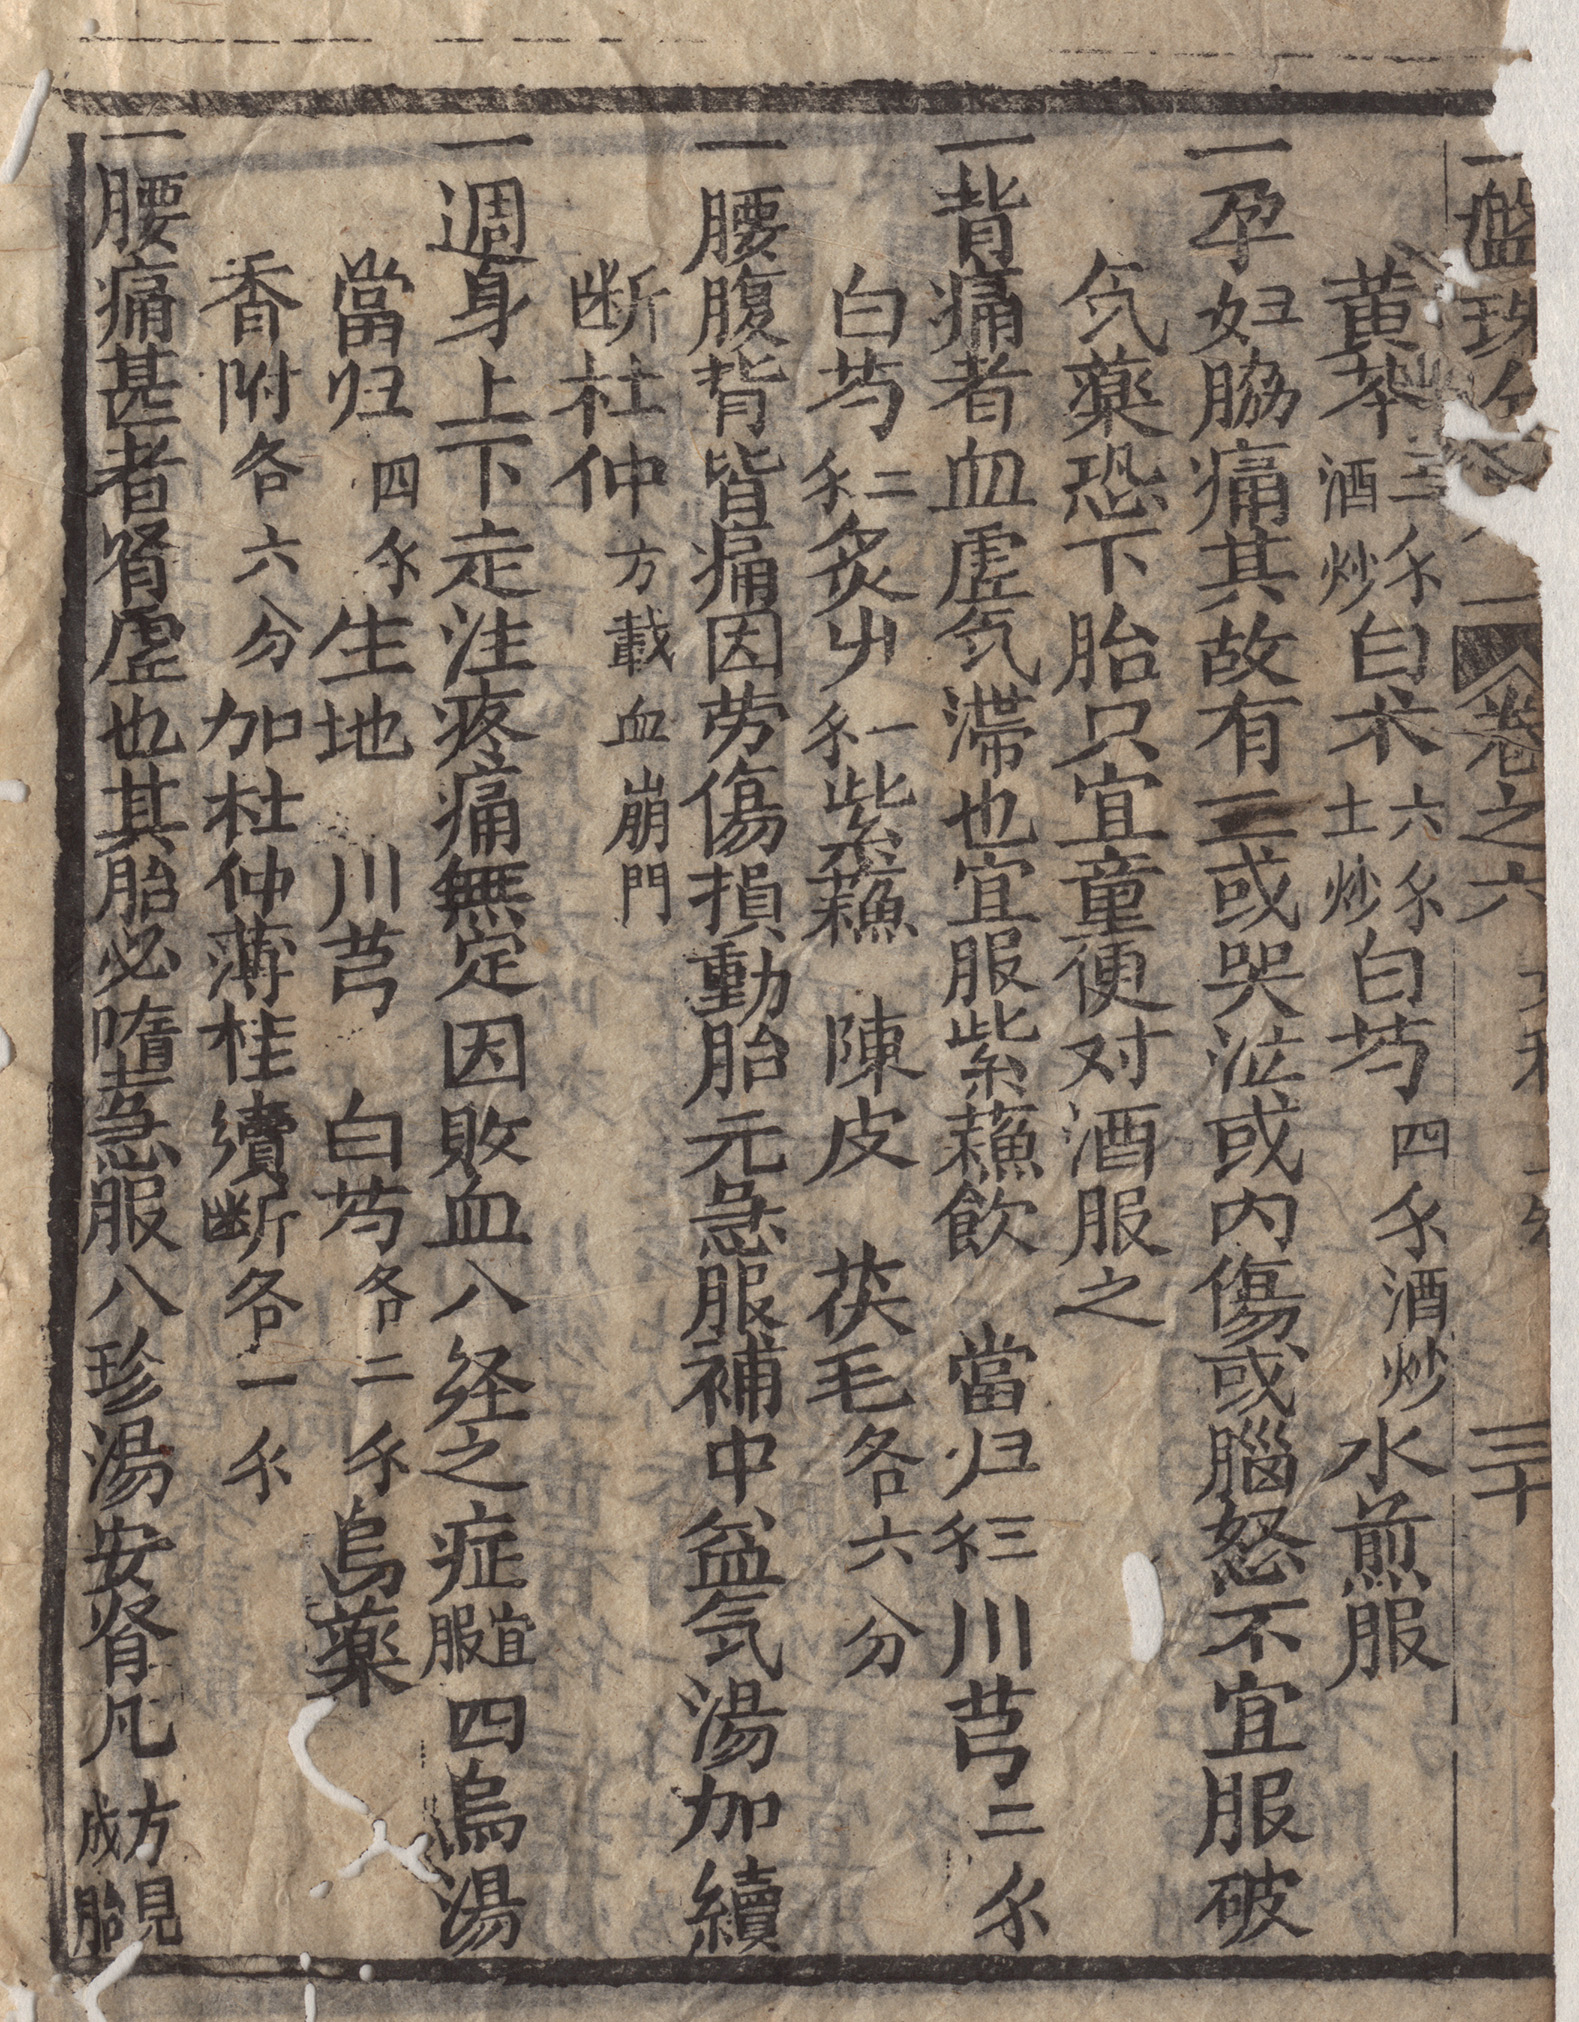 盤珠 卷之六 三十
黄芩三𠆤酒炒白朮六𠆤土炒白芍四𠆤酒炒水煎服
一孕妇脇痛其故有三或哭泣或内傷或腦怒不宜服破
気薬恐下胎只宜童便对酒服之
一背痛者血虛気滞也宜服紫蘓飲 當归三𠆤川芎二𠆤
白芍二𠆤炙屮一𠆤紫蘓 陳皮 茯毛各六分
一腰腹背皆痛因劳傷損動胎元急服補中益気湯加續
断杜仲方載血崩門
一週身上下走注疼痛無定因敗血八経之症宜服四烏湯
當归四𠆤生地 川芎 白芍各二𠆤烏薬
香附各六分加杜仲薄桂續断各一𠆤
一腰痛甚者肾虛也其胎必墮急服八珍湯安肾凡方見成胎